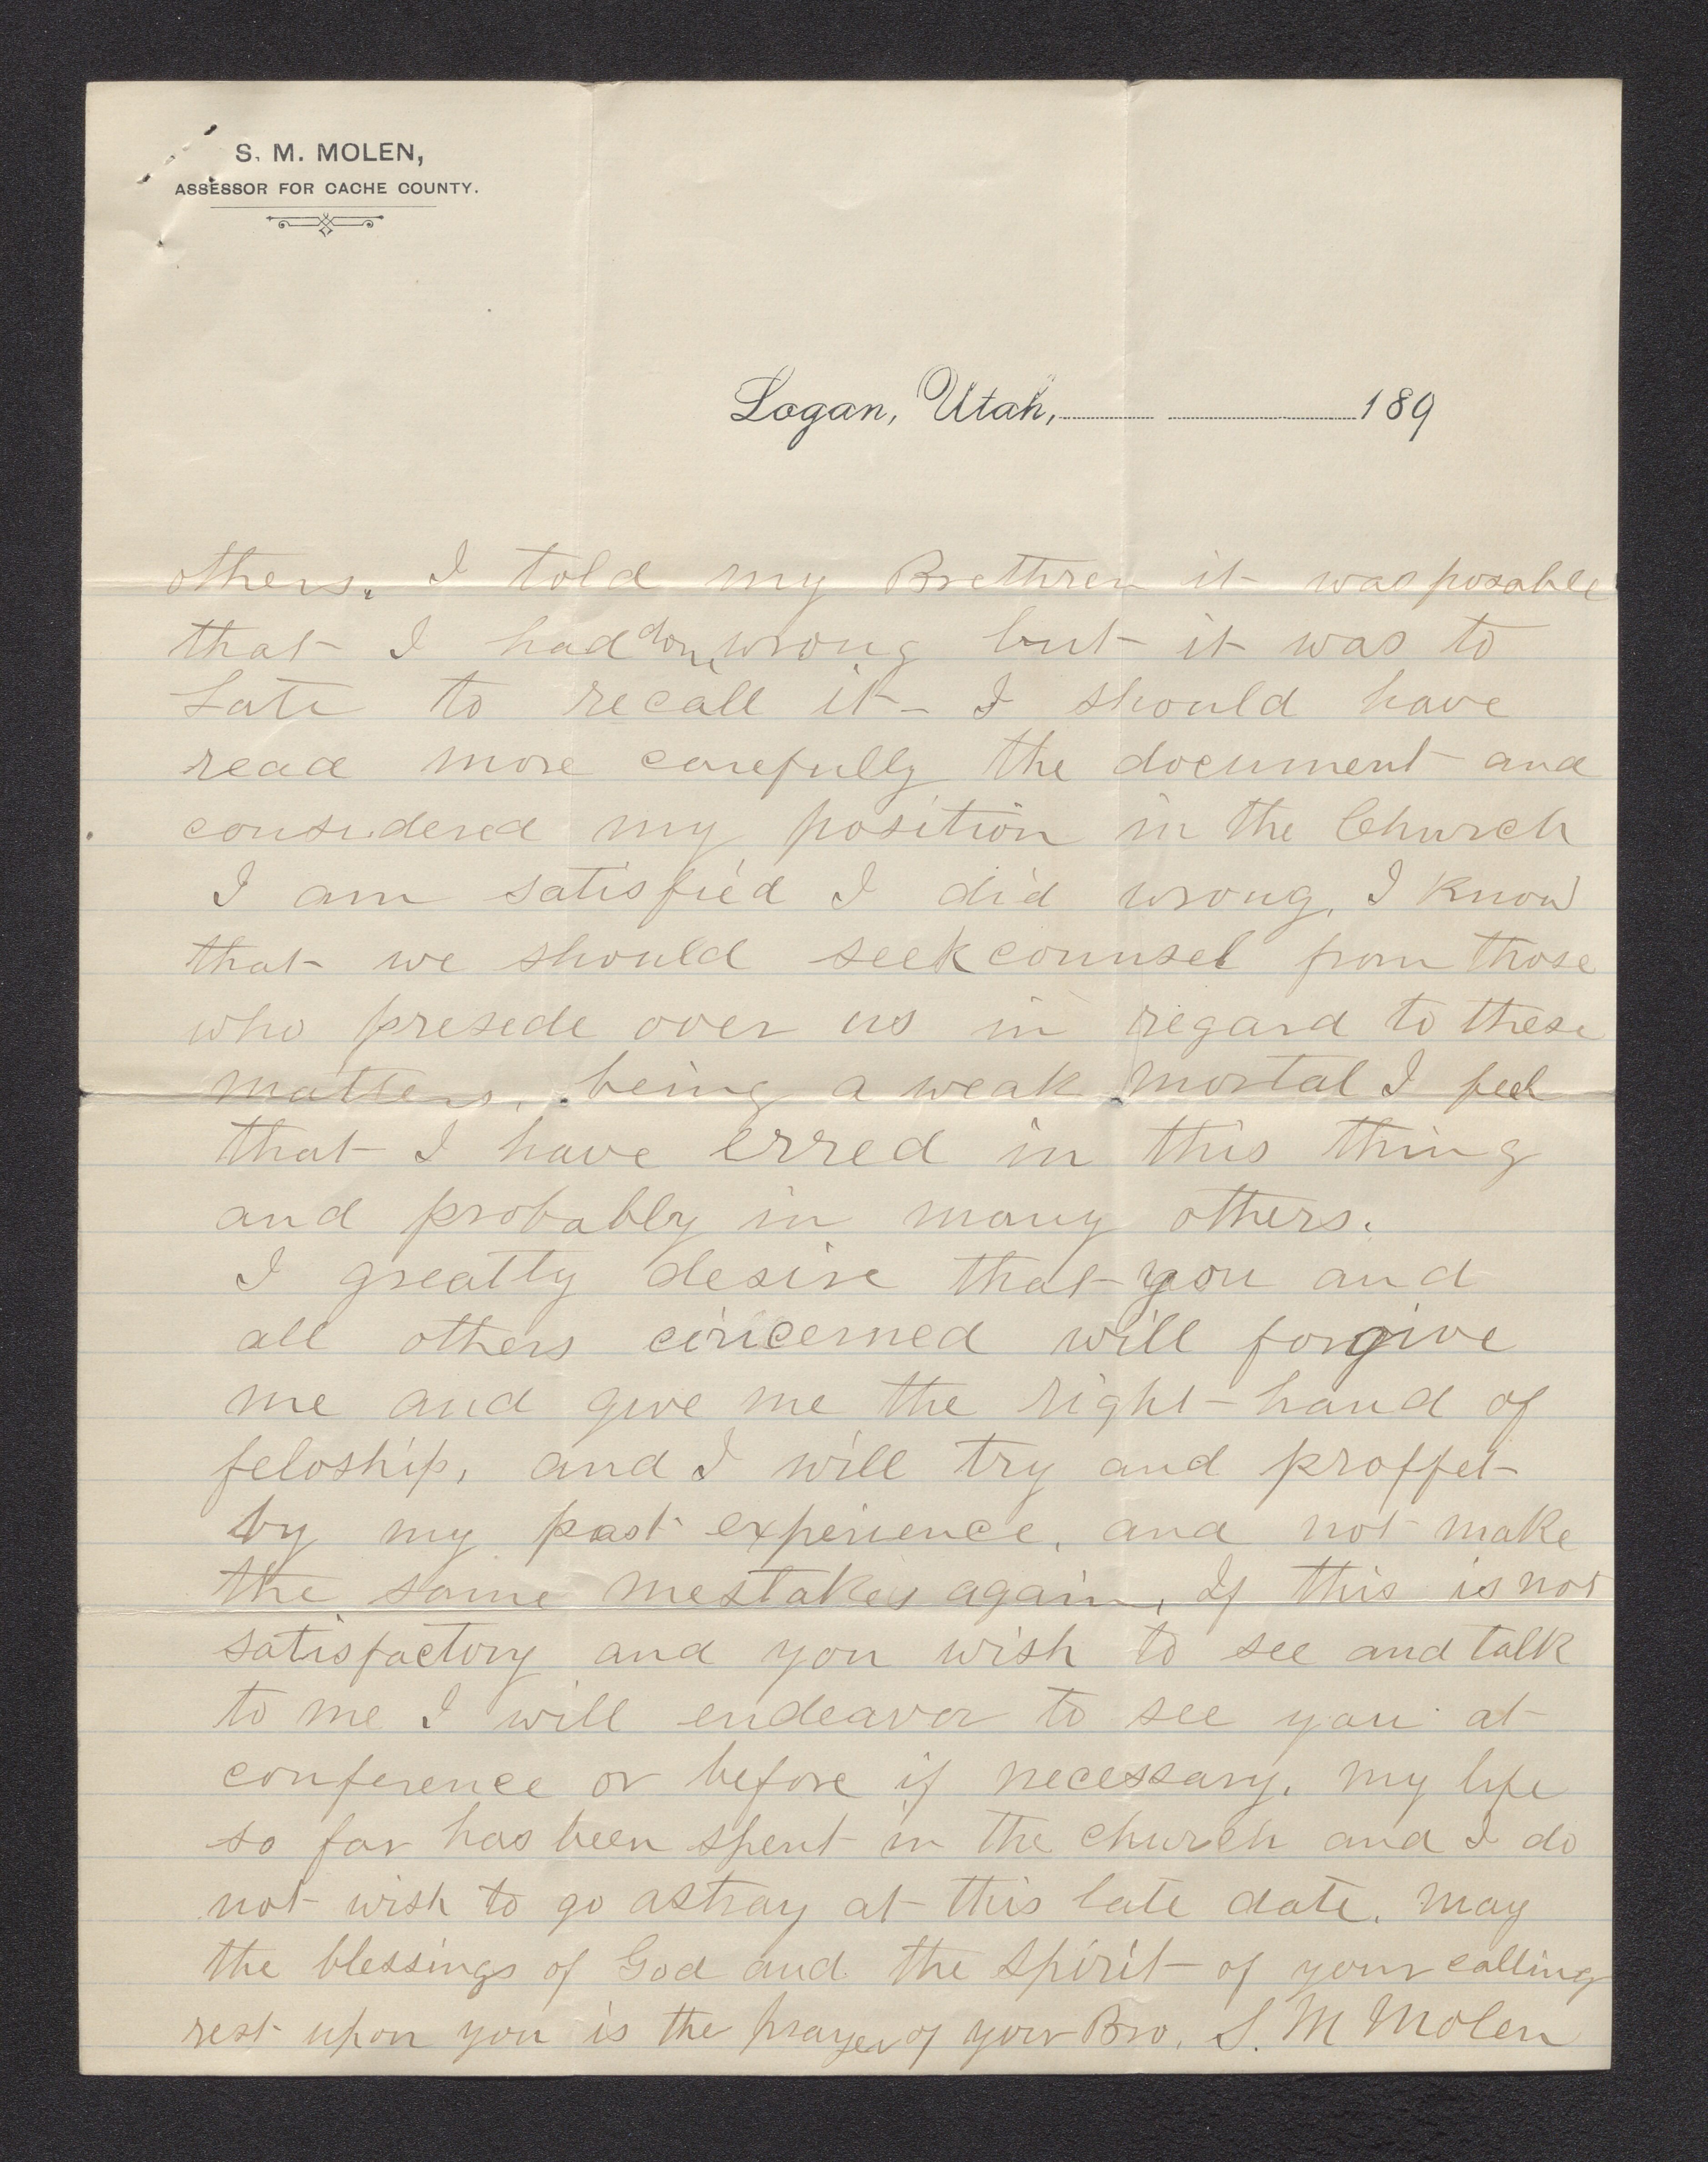 S. M. MOLEN,
ASSESSOR FOR CACHE COUNTY.
Logan, Utah, 189
others. I told my Brethren it was posable
that I had done wrong but it was to
Late to recall it - I should have
read more carefully the document and
considered my position in the Church
I am satisfied I did wrong, I know
that we should seek counsel from those
who preside over us in regard to these
matters. being a weak mortal I feel
that I have erred in this thing
and probably in many others.
I greatty desire that you and
all others concerned will forgive
me and give me the right-hand of
feloship, and I will try and proffet
by my past experience, and not make
the same mestakes again, If this is not
satisfactory and you wish to see and talk
to me I will endeavor to see you at
conference or before if necessary. my life
so far has been spent in the church and I do
not wish to go astray at this late date. may
the blessings of God and the spirit of your calling
rest upon you is the prayer of your Bro. S. M Molen